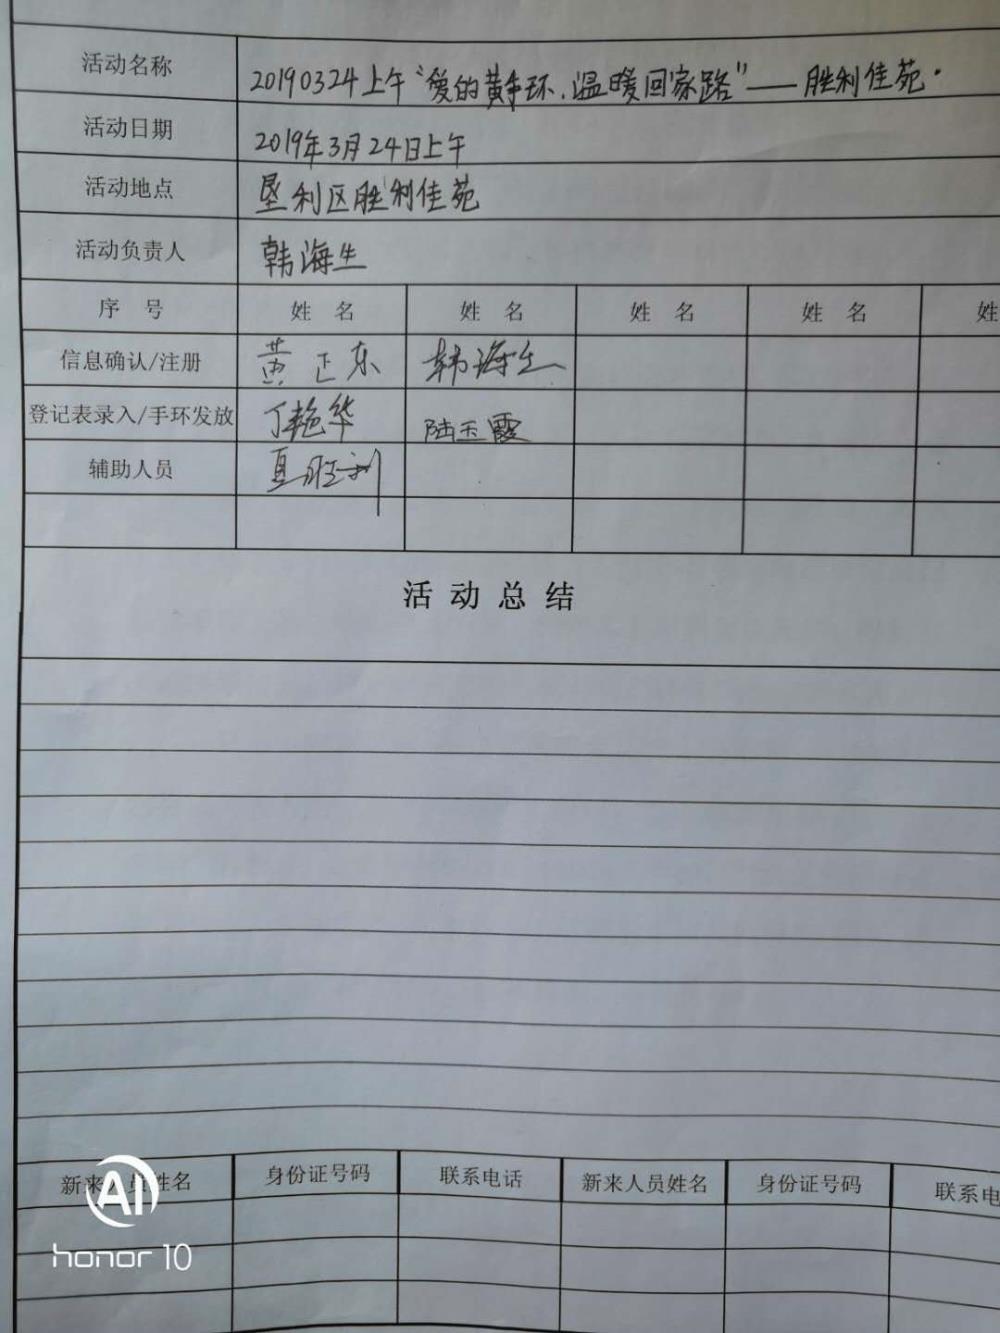 活动名称 20190324上午“爱的黄手环.温暖回家路”——胜利佳苑.
活动日期 2019年3月24日上午
活动地点 垦利区胜利佳苑
活动负责人 韩海生
序 号 姓 名 姓 名 姓 名 姓 名 姓
信息确认/注册 黄正东 韩海生
登记表录入/手环发放 丁艳华 陆玉霞
辅助人员 夏胜利
活动总结
新来人员姓名 身份证号码 联系电话 新来人员姓名 身份证号码 联系电
AI
honor 10